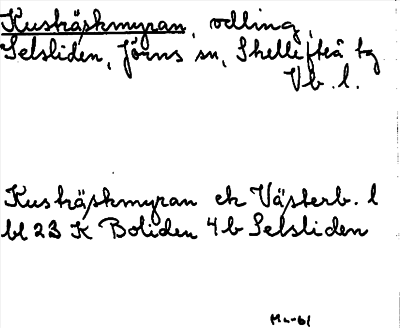 Kuskäskmyran, odling,
Selsliden, Jörns sn, Skellefteå tg
Vb. l.
Kuskäskmyran ek Västerb. l
bl 23 K Boliden 4b Selsliden